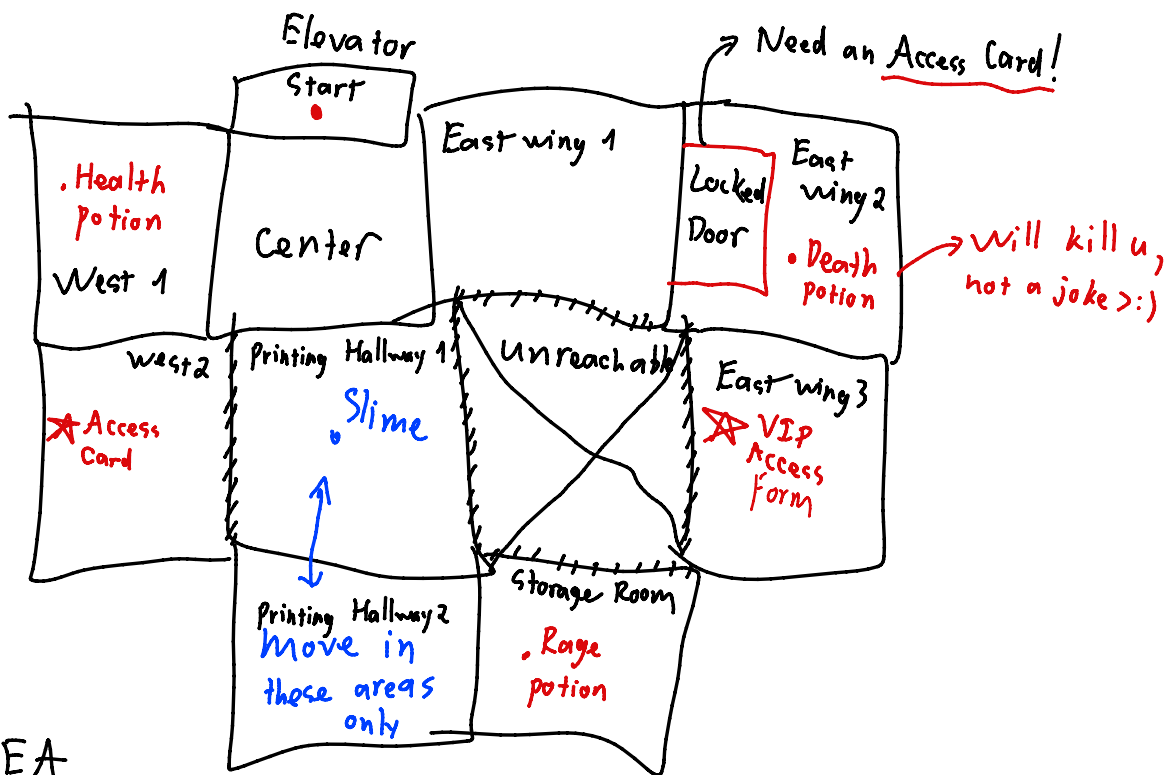 Elevator
Start
Need an Access Card!
East wing 1
Locked
Door
East
wing 2
. Death
potion
Will kill u,
not a joke >:)
. Health
potion
West 1
Center
West 2
Access
Card
Printing Hallway 1
Slime
Unreachable
East wing 3
VIP
Access
Form
Printing Hallway 2
Move in
these areas
only
Storage Room
. Rage
potion
EA